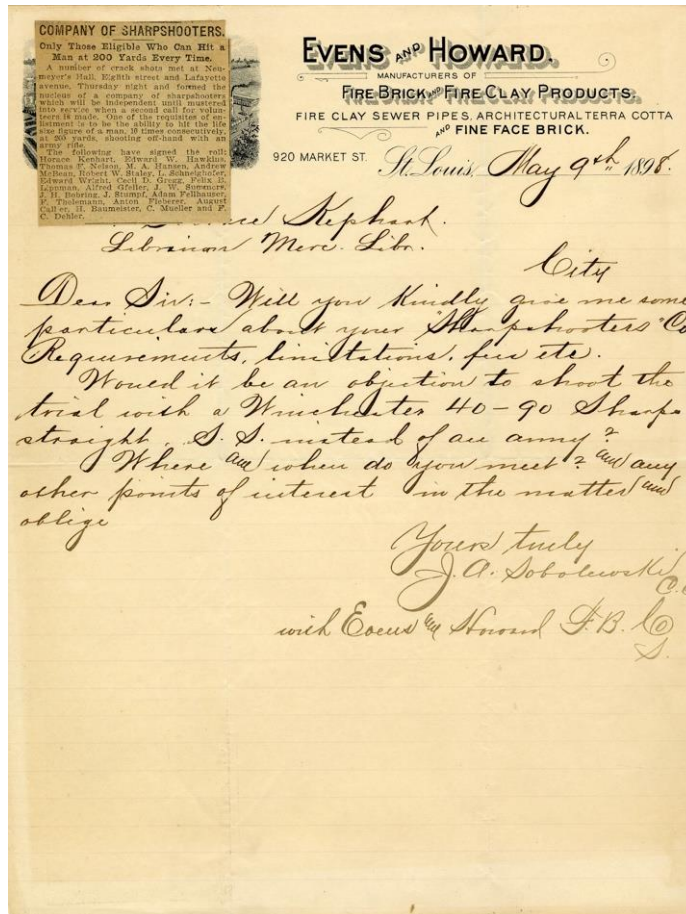 COMPANY OF SHARPSHOOTERS.
Only Those Eligible Who Can Hit a
Man at 200 Yards Every Time.
A number of crack shots met at Neu-
meyer's Hall, Eighth street and Lafayette
avenue, Thursday night and formed the
nucleus of a company of sharpshooters
which will be independent until mustered
into service when a second call for volun-
teers is made. One of the requisites of en-
listment is to be the ability to hit the life
size figure of a man, 10 times consecutively,
at 200 yards, shooting off-hand with an
army rifle.
The following have signed the roll:
Horace Kephart, Edward W. Hawkins,
Thomas F. Nelson, M. A. Hansen, Andrew
McBean, Robert W. Staley, L. Schneighofer,
Edward Wright, Cecil D. Gregg, Felix E.
Lippman, Alfred Gfeller, J. W. Summers,
J. H. Bohring, J. Stumpf, Adam Fellhauser,
F. Thelemann, Anton Fieberer, August
H. Baumeister, C. Mueller and F.
C. Dehler.
EVENS AND HOWARD.
MANUFACTURERS OF
FIRE BRICK AND FIRE CLAY PRODUCTS.
FIRE CLAY SEWER PIPES, ARCHITECTURAL TERRA COTTA
AND FINE FACE BRICK.
920 MARKET ST. St. Louis, May 9th 1898.
Kephart.
Librarian Merc. Libr.
City
Dear Sir:- Will you kindly give me some
particulars about your "Sharpshooters" Co
Requirements, limitations, fees etc.
Would it be an objection to shoot the
trial with a Winchester 40-90 Sharps
straight. S.S. instead of an army?
Where and when do you meet? and any
other points of interest in the matter and
oblige
Yours truly
J. A. Sobolewski
with Evens and Howard F. B. Co